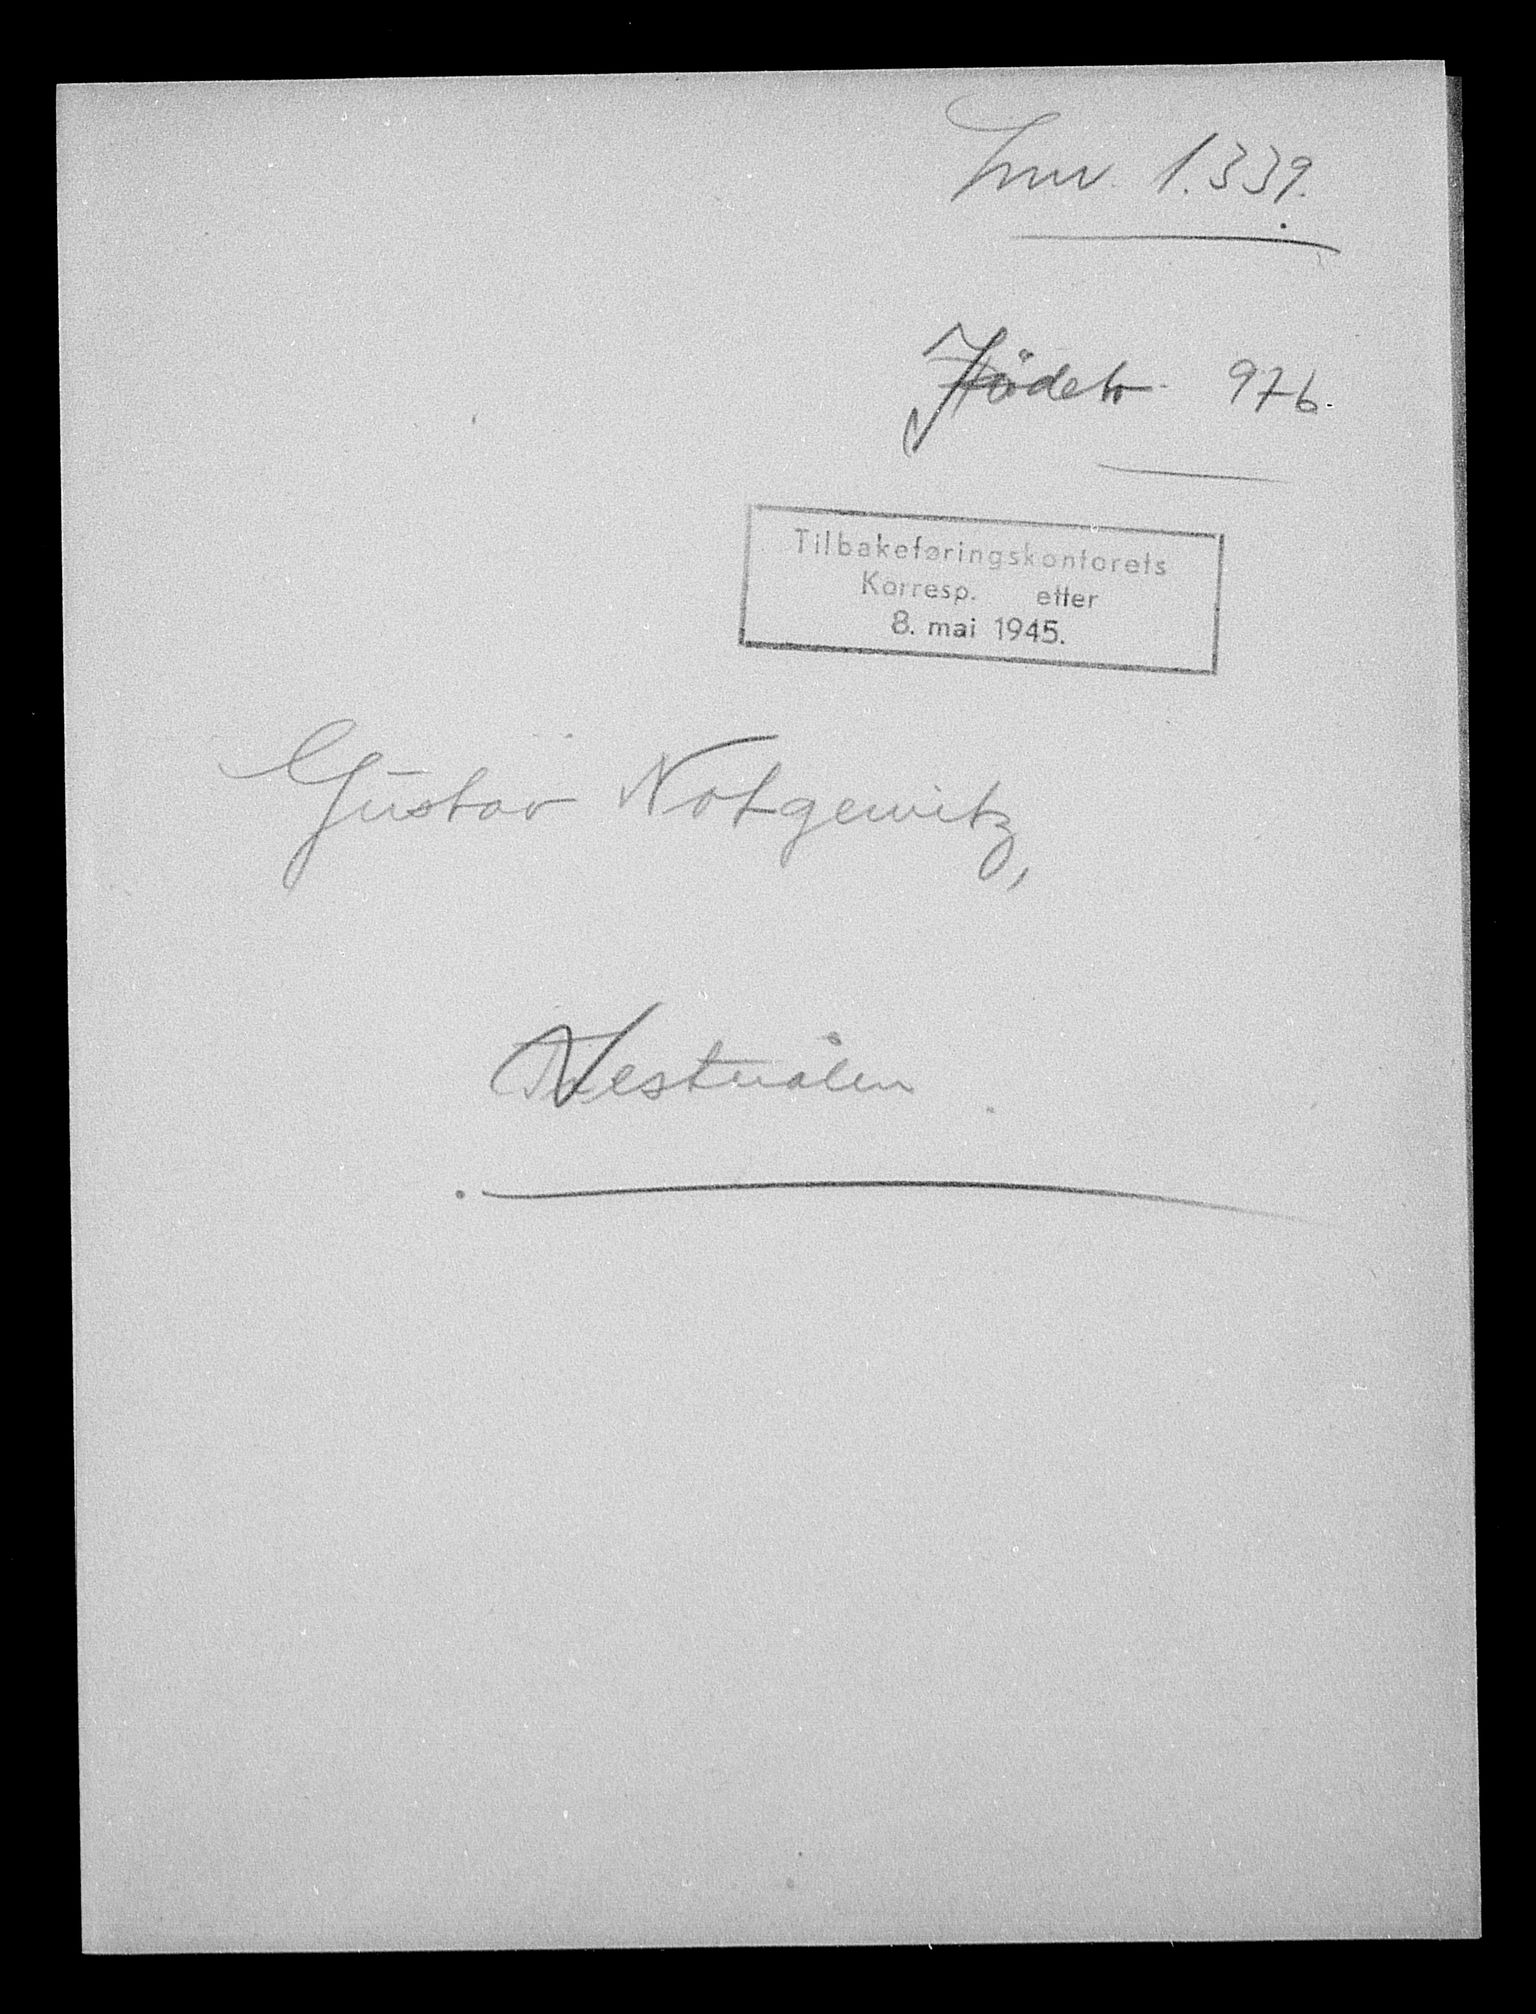 Lnv. 1.339.
Jödebo 976.
Tilbakeføringskontorets
Korresp. etter
8. mai 1945.
Gustav Notgewitz,
Vestnålen